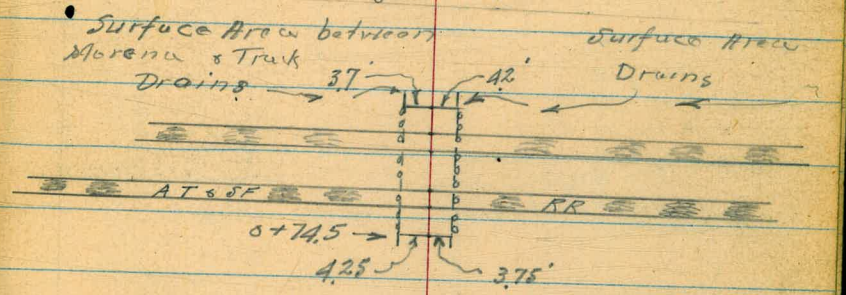 Surface Area between
Morena & Track
Drains
Surface Area
Drains
3.7'
4.2'
A T & SF
RR
0+74.5
4.25
3.75'